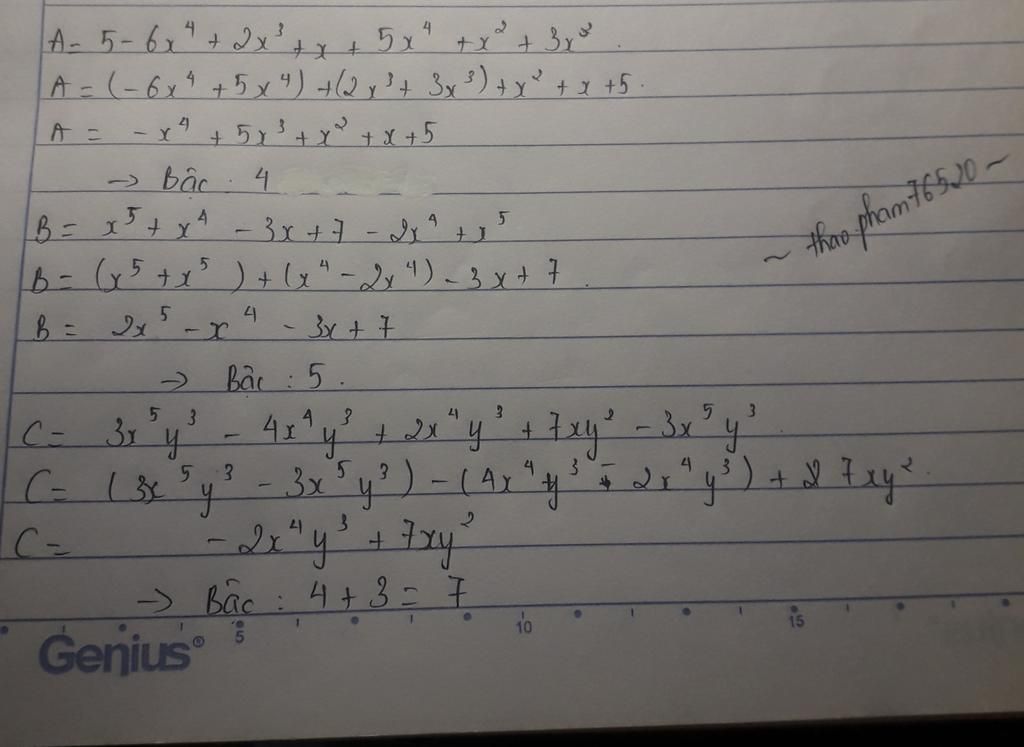 A = 5 - 6x⁴ + 2x³ + x + 5x⁴ + x² + 3x³.
A = (-6x⁴ + 5x⁴) + (2x³ + 3x³) + x² + x + 5.
A = - x⁴ + 5x³ + x² + x + 5
→ Bậc : 4
B = x⁵ + x⁴ - 3x + 7 - 2x⁴ + x⁵
~ thao.pham76520 ~
B = (x⁵ + x⁵) + (x⁴ - 2x⁴) - 3x + 7.
B = 2x⁵ - x⁴ - 3x + 7
→ Bậc : 5.
C = 3x⁵y³ - 4x⁴y³ + 2x⁴y³ + 7xy² - 3x⁵y³
C = (3x⁵y³ - 3x⁵y³) - (4x⁴y³ - 2x⁴y³) + 7xy².
C = - 2x⁴y³ + 7xy²
→ Bậc : 4 + 3 = 7
5 10 15
Genius®